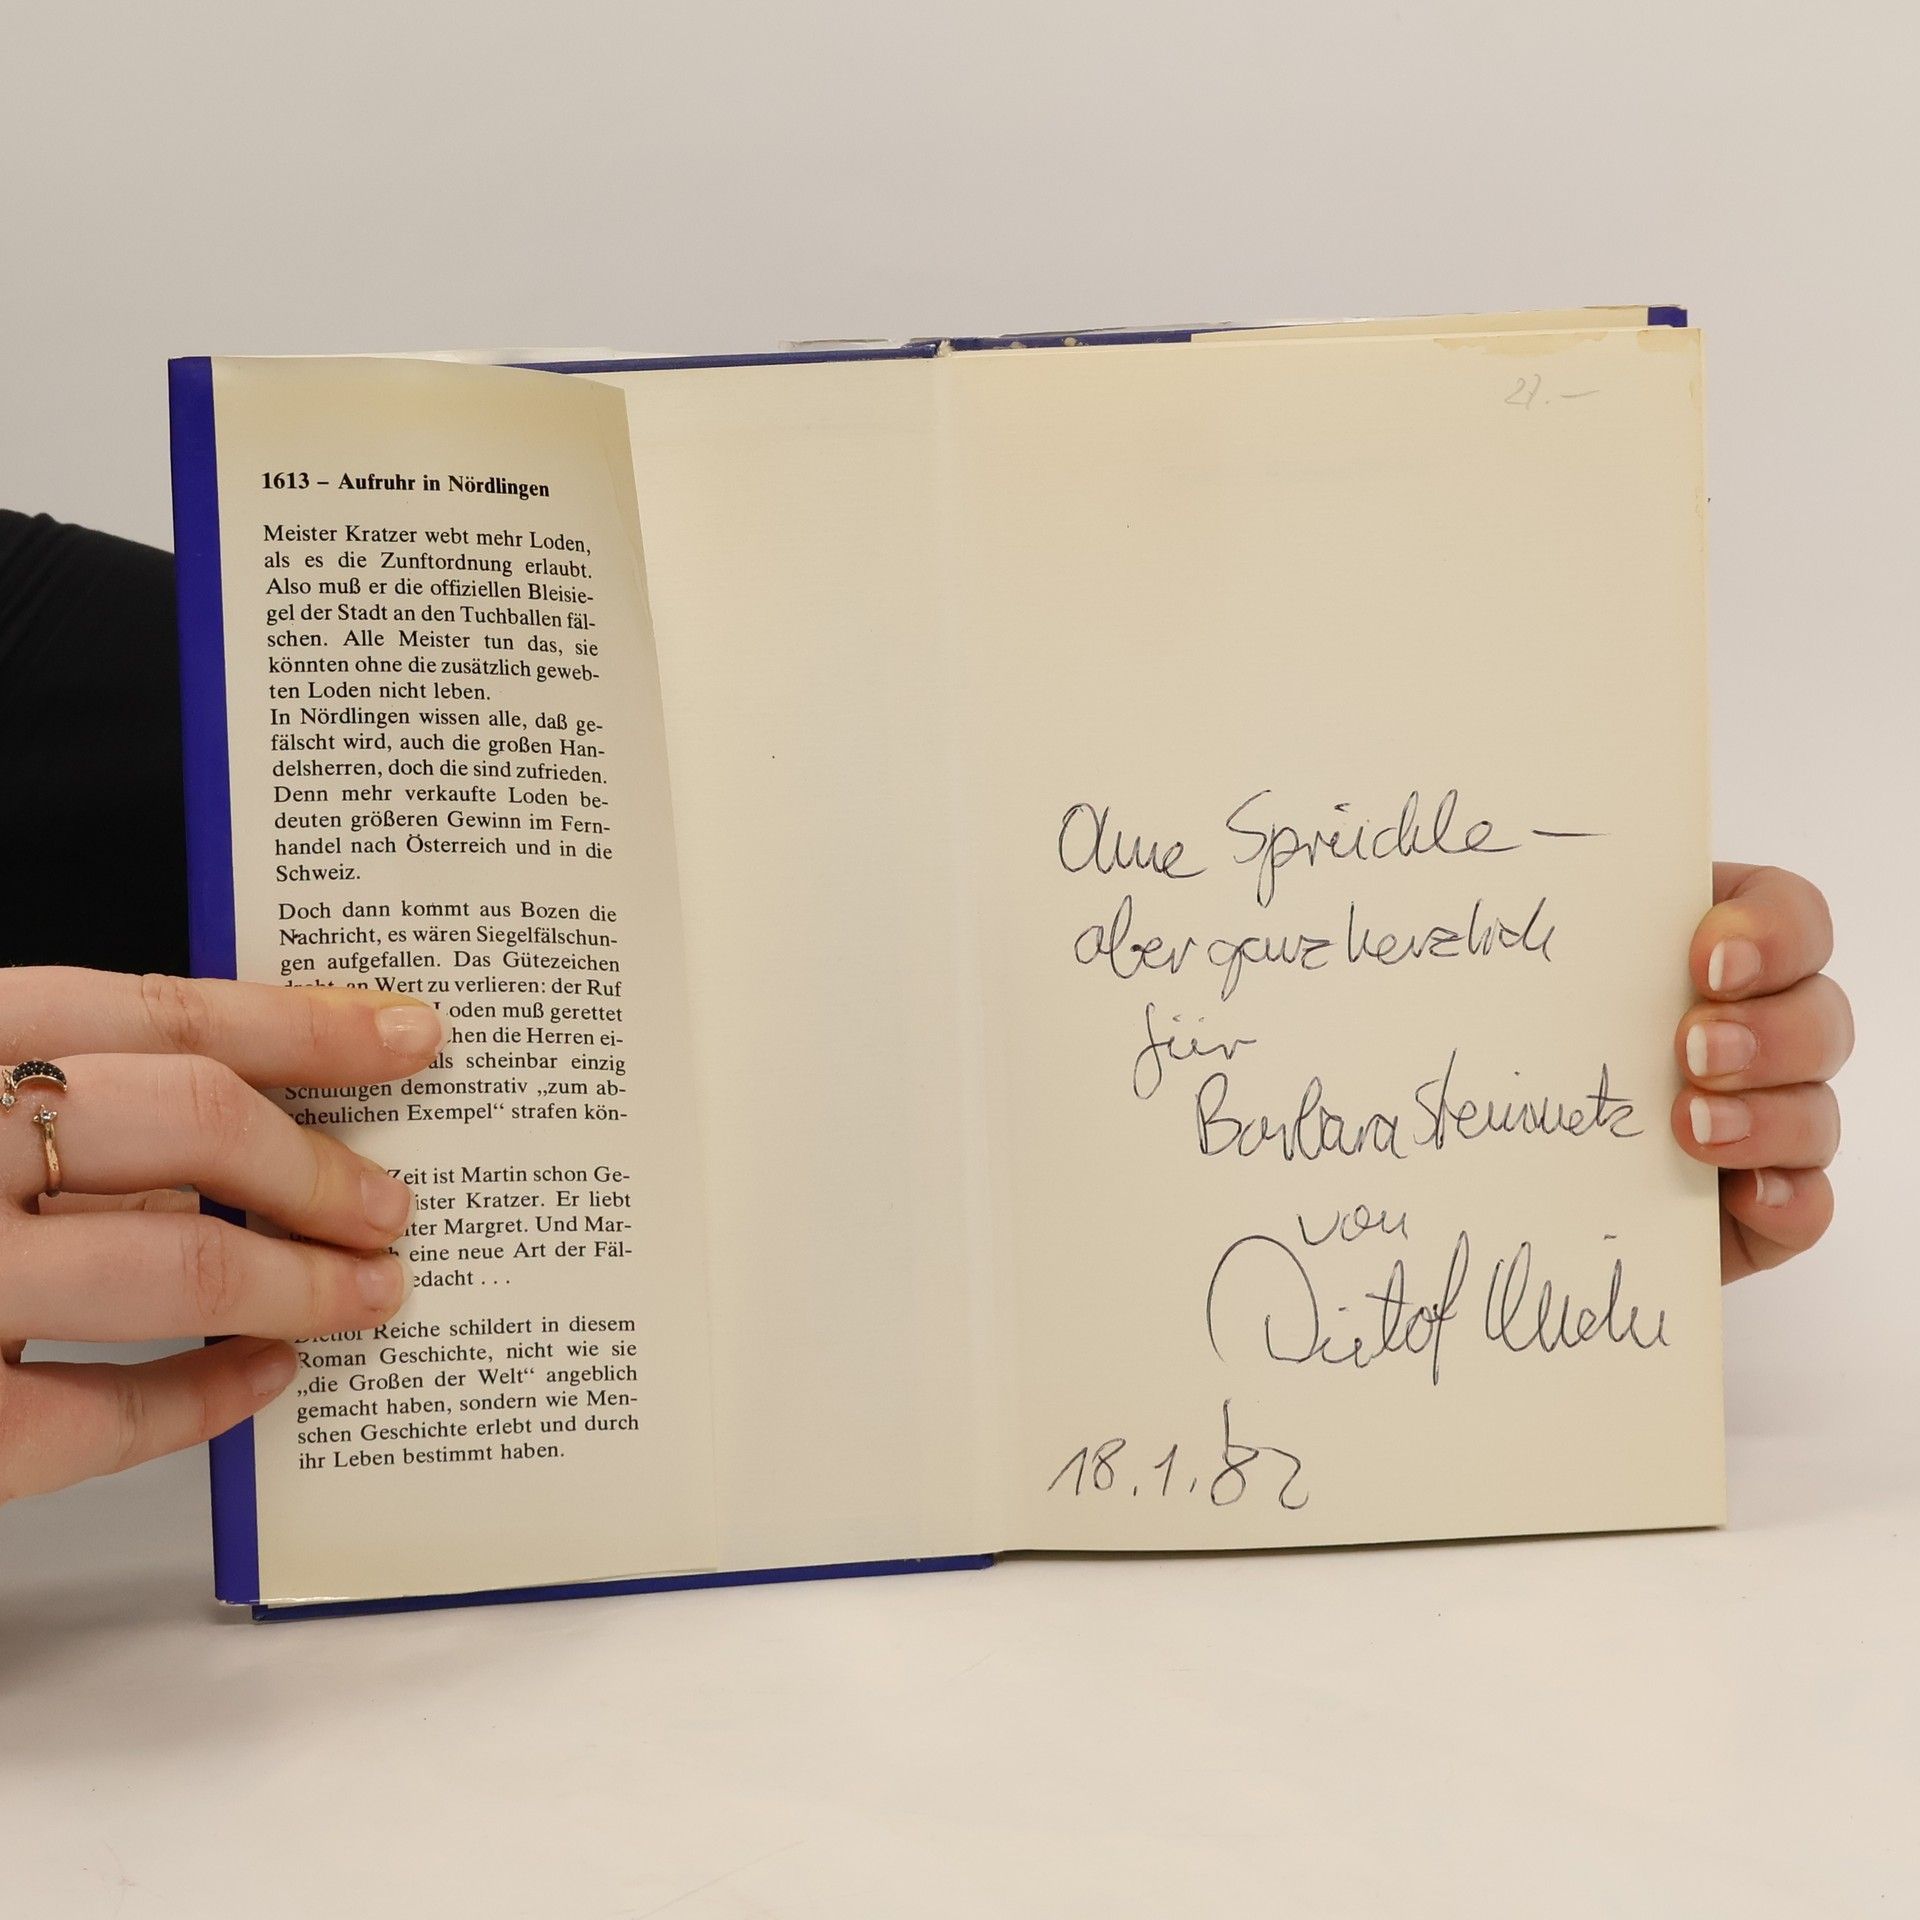 1613 – Aufruhr in Nördlingen
Meister Kratzer webt mehr Loden,
als es die Zunftordnung erlaubt.
Also muß er die offiziellen Bleisie-
gel der Stadt an den Tuchballen fäl-
schen. Alle Meister tun das, sie
könnten ohne die zusätzlich geweb-
ten Loden nicht leben.
In Nördlingen wissen alle, daß ge-
fälscht wird, auch die großen Han-
delsherren, doch die sind zufrieden.
Denn mehr verkaufte Loden be-
deuten größeren Gewinn im Fern-
handel nach Österreich und in die
Schweiz.
Doch dann kommt aus Bozen die
Nachricht, es wären Siegelfälschun-
gen aufgefallen. Das Gütezeichen
droht an Wert zu verlieren: der Ruf
Loden muß gerettet
die Herren ei-
als scheinbar einzig
Schuldigen demonstrativ „zum ab-
scheulichen Exempel“ strafen kön-
Zeit ist Martin schon Ge-
Kratzer. Er liebt
Margret. Und Mar-
eine neue Art der Fäl-
...
Dietlof Reiche schildert in diesem
Roman Geschichte, nicht wie sie
„die Großen der Welt“ angeblich
gemacht haben, sondern wie Men-
schen Geschichte erlebt und durch
ihr Leben bestimmt haben.
27.–
Ohne Sprüchle –
aber ganz herzlich
für
Barbara Steinmetz
von
Dietlof Reiche
18.1.82